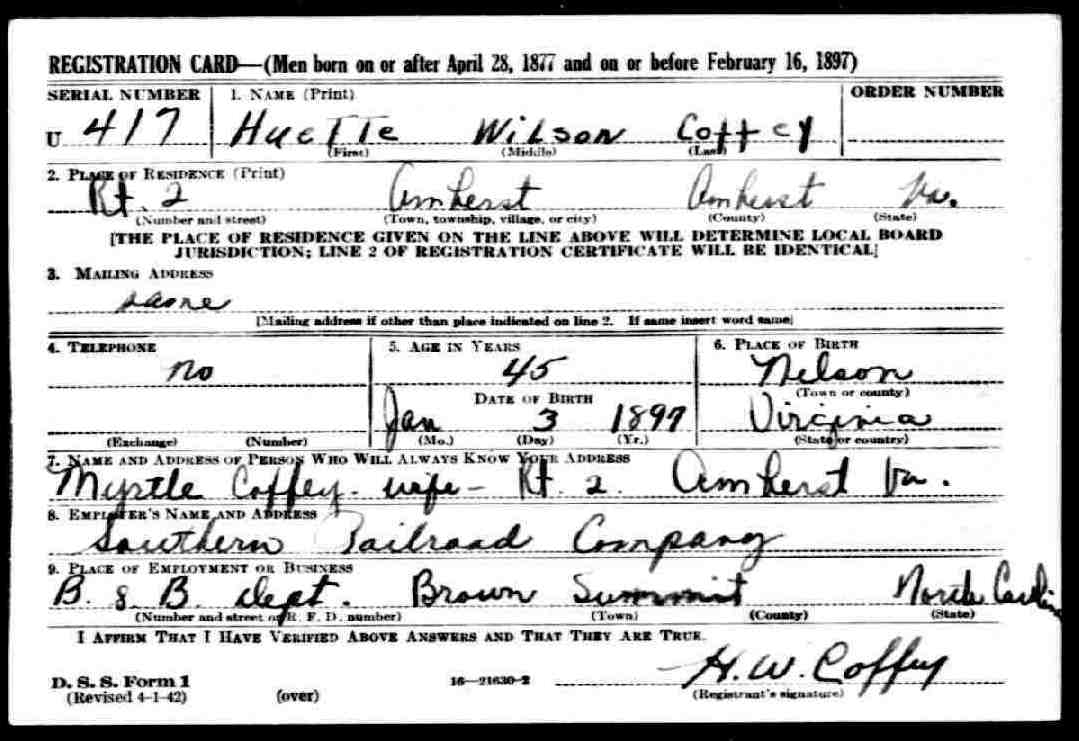 REGISTRATION CARD—(Men born on or after April 28, 1877 and on or before February 16, 1897)
SERIAL NUMBER 1. NAME (Print) ORDER NUMBER
U 417 Huette Wilson Coffey
(First) (Middle) (Last)
2. PLACE OF RESIDENCE (Print)
Rt. 2 Amherst Amherst Va.
(Number and street) (Town, township, village, or city) (County) (State)
[THE PLACE OF RESIDENCE GIVEN ON THE LINE ABOVE WILL DETERMINE LOCAL BOARD
JURISDICTION; LINE 2 OF REGISTRATION CERTIFICATE WILL BE IDENTICAL]
3. MAILING ADDRESS
same
[Mailing address if other than place indicated on line 2. If same insert word same]
4. TELEPHONE 5. AGE IN YEARS 6. PLACE OF BIRTH
no 45 Nelson
DATE OF BIRTH (Town or county)
Jan 3 1897 Virginia
(Exchange) (Number) (Mo.) (Day) (Yr.) (State or country)
7. NAME AND ADDRESS OF PERSON WHO WILL ALWAYS KNOW YOUR ADDRESS
Myrtle Coffey - wife - Rt. 2. Amherst Va.
8. EMPLOYER'S NAME AND ADDRESS
Southern Railroad Company
9. PLACE OF EMPLOYMENT OR BUSINESS
B. & B. dept. Brown Summit North Carolina
(Number and street or R. F. D. number) (Town) (County) (State)
I AFFIRM THAT I HAVE VERIFIED ABOVE ANSWERS AND THAT THEY ARE TRUE.
H. W. Coffey
D. S. S. Form 1 16—21630-2 (Registrant's signature)
(Revised 4-1-42) (over)